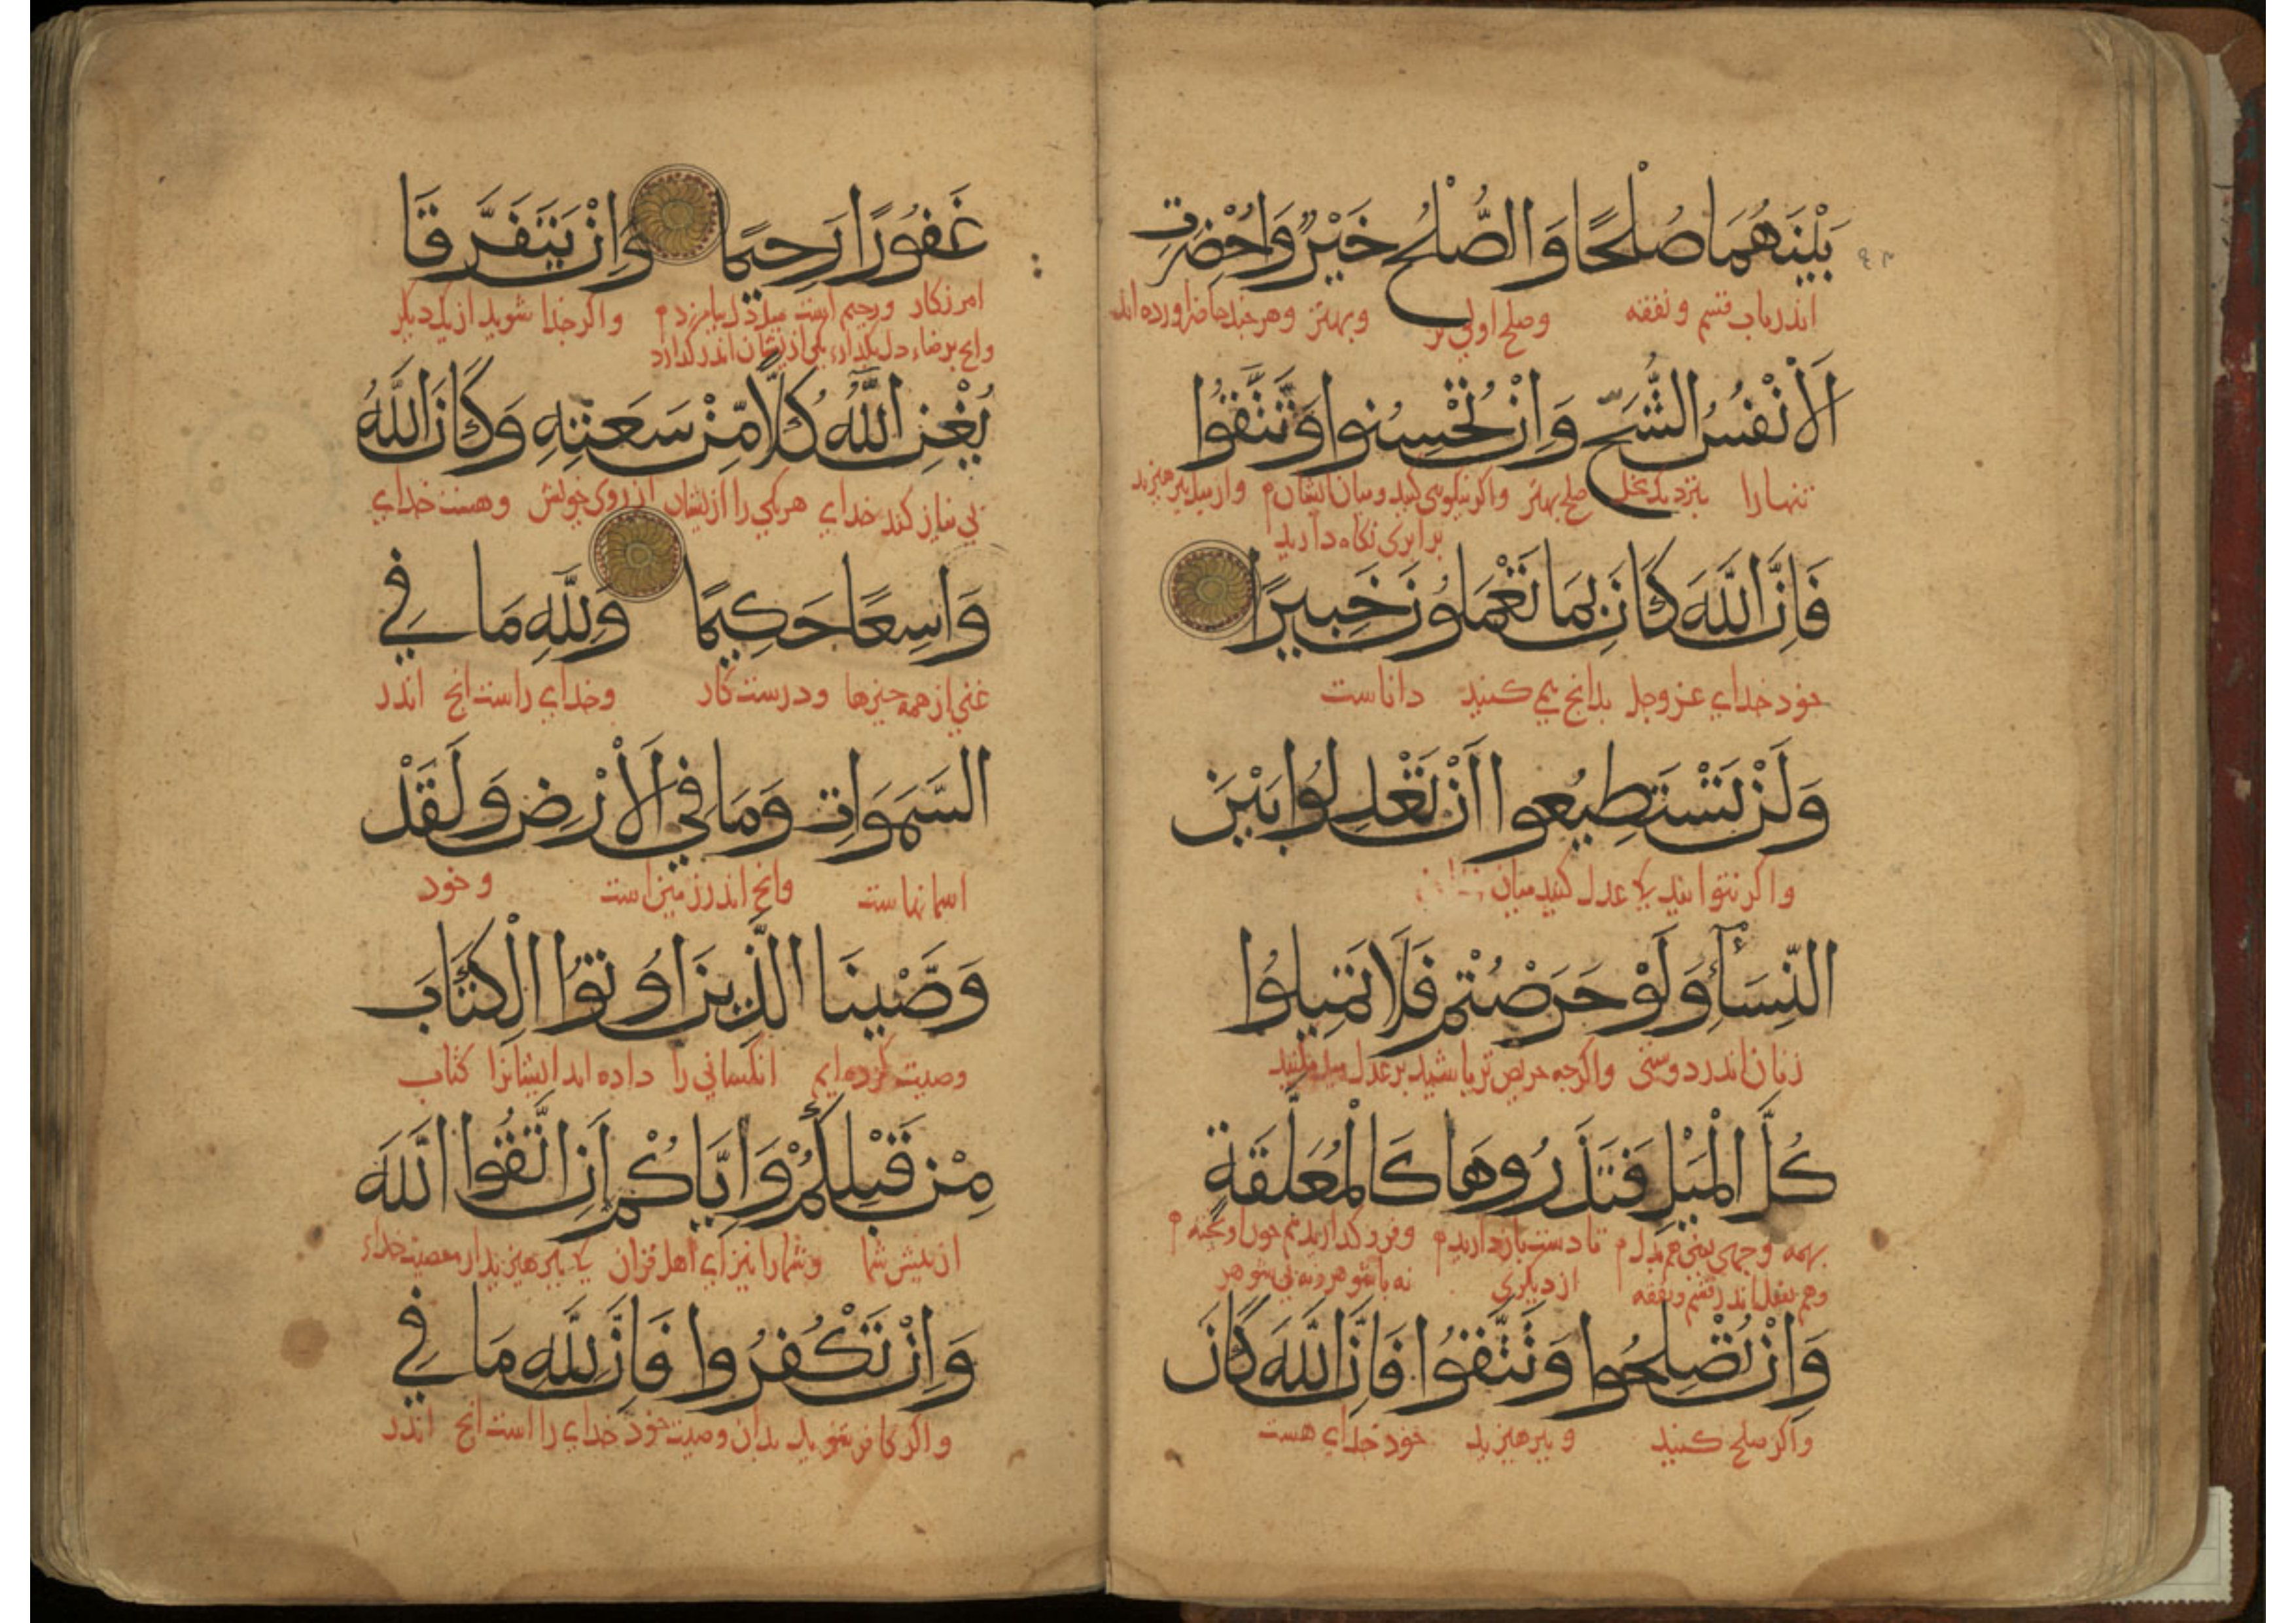 بَيْنَهُمَا صُلْحًا وَالصُّلْحُ خَيْرٌ وَاُحْضِرَتِ
اندر باب قسم و نفقه وصلح اولی تر وبهتر وهر خیل حاضر اورده اند
اَلْاَنْفُسُ الشُّحَّ وَاِنْ تُحْسِنُوا وَتَتَّقُوا
تنها را بنزدیک بخل صلح بهتر واکر نیکویی کنید ومیان ایشان م واز میل بپرهیزید
برابری نکاه دارید
فَاِنَّ اللّٰهَ كَانَ بِمَا تَعْمَلُونَ خَبِيرًا
خود خدای عز وجل بدانج می کنید داناست
وَلَنْ تَسْتَطِيعُوا اَنْ تَعْدِلُوا بَيْنَ
واکر نتوانید کا عدل کنید میان
النِّسَآءِ وَلَوْ حَرَصْتُمْ فَلَا تَمِيلُوا
زنان اندر دوستی واکرجه حریص تر باشید بر عدل میل مکنید
كُلَّ الْمَيْلِ فَتَذَرُوهَا كَالْمُعَلَّقَةِ
بهمه وجهی یعنی هم بدل م تا دست بازدارید م وفرو کذاریدش چون اویخته م
وهم بفعل اندر قسم ونفقه از دیکری نه با شوهر ونه بی شوهر
وَاِنْ تُصْلِحُوا وَتَتَّقُوا فَاِنَّ اللّٰهَ كَانَ
واکر صلح کنید وبپرهیزید خود خدای هست
غَفُورًا رَحِيمًا وَاِنْ يَتَفَرَّقَا
امرزکار ورحیم است میل دل بیامرزد م واکر جدا شوید از یکدیکر
وانج برضاء دل بکذارد یکی از ایشان اندر کذارد
يُغْنِ اللّٰهُ كُلًّا مِّنْ سَعَتِهِ وَكَانَ اللّٰهُ
بی نیاز کند خدای هریکی را از ایشان از روی خویش وهست خدای
وَاسِعًا حَكِيمًا وَلِلّٰهِ مَا فِي
غنی از همه چیزها ودرست کار وخدای راست انج اندر
السَّمَوَاتِ وَمَا فِي الْاَرْضِ وَلَقَدْ
اسمانهاست وانج اندر زمین است وخود
وَصَّيْنَا الَّذِينَ اُوتُوا الْكِتَابَ
وصیت کرده ایم انکسانی را داده اند ایشانرا کتاب
مِنْ قَبْلِكُمْ وَاِيَّاكُمْ اَنِ اتَّقُوا اللّٰهَ
از پیش شما وشما را نیز ای اهل قران کا بپرهیزید از معصیت خدای
وَاِنْ تَكْفُرُوا فَاِنَّ لِلّٰهِ مَا فِي
واکر کافر شوید بدان وصیت خود خدای را است انج اندر